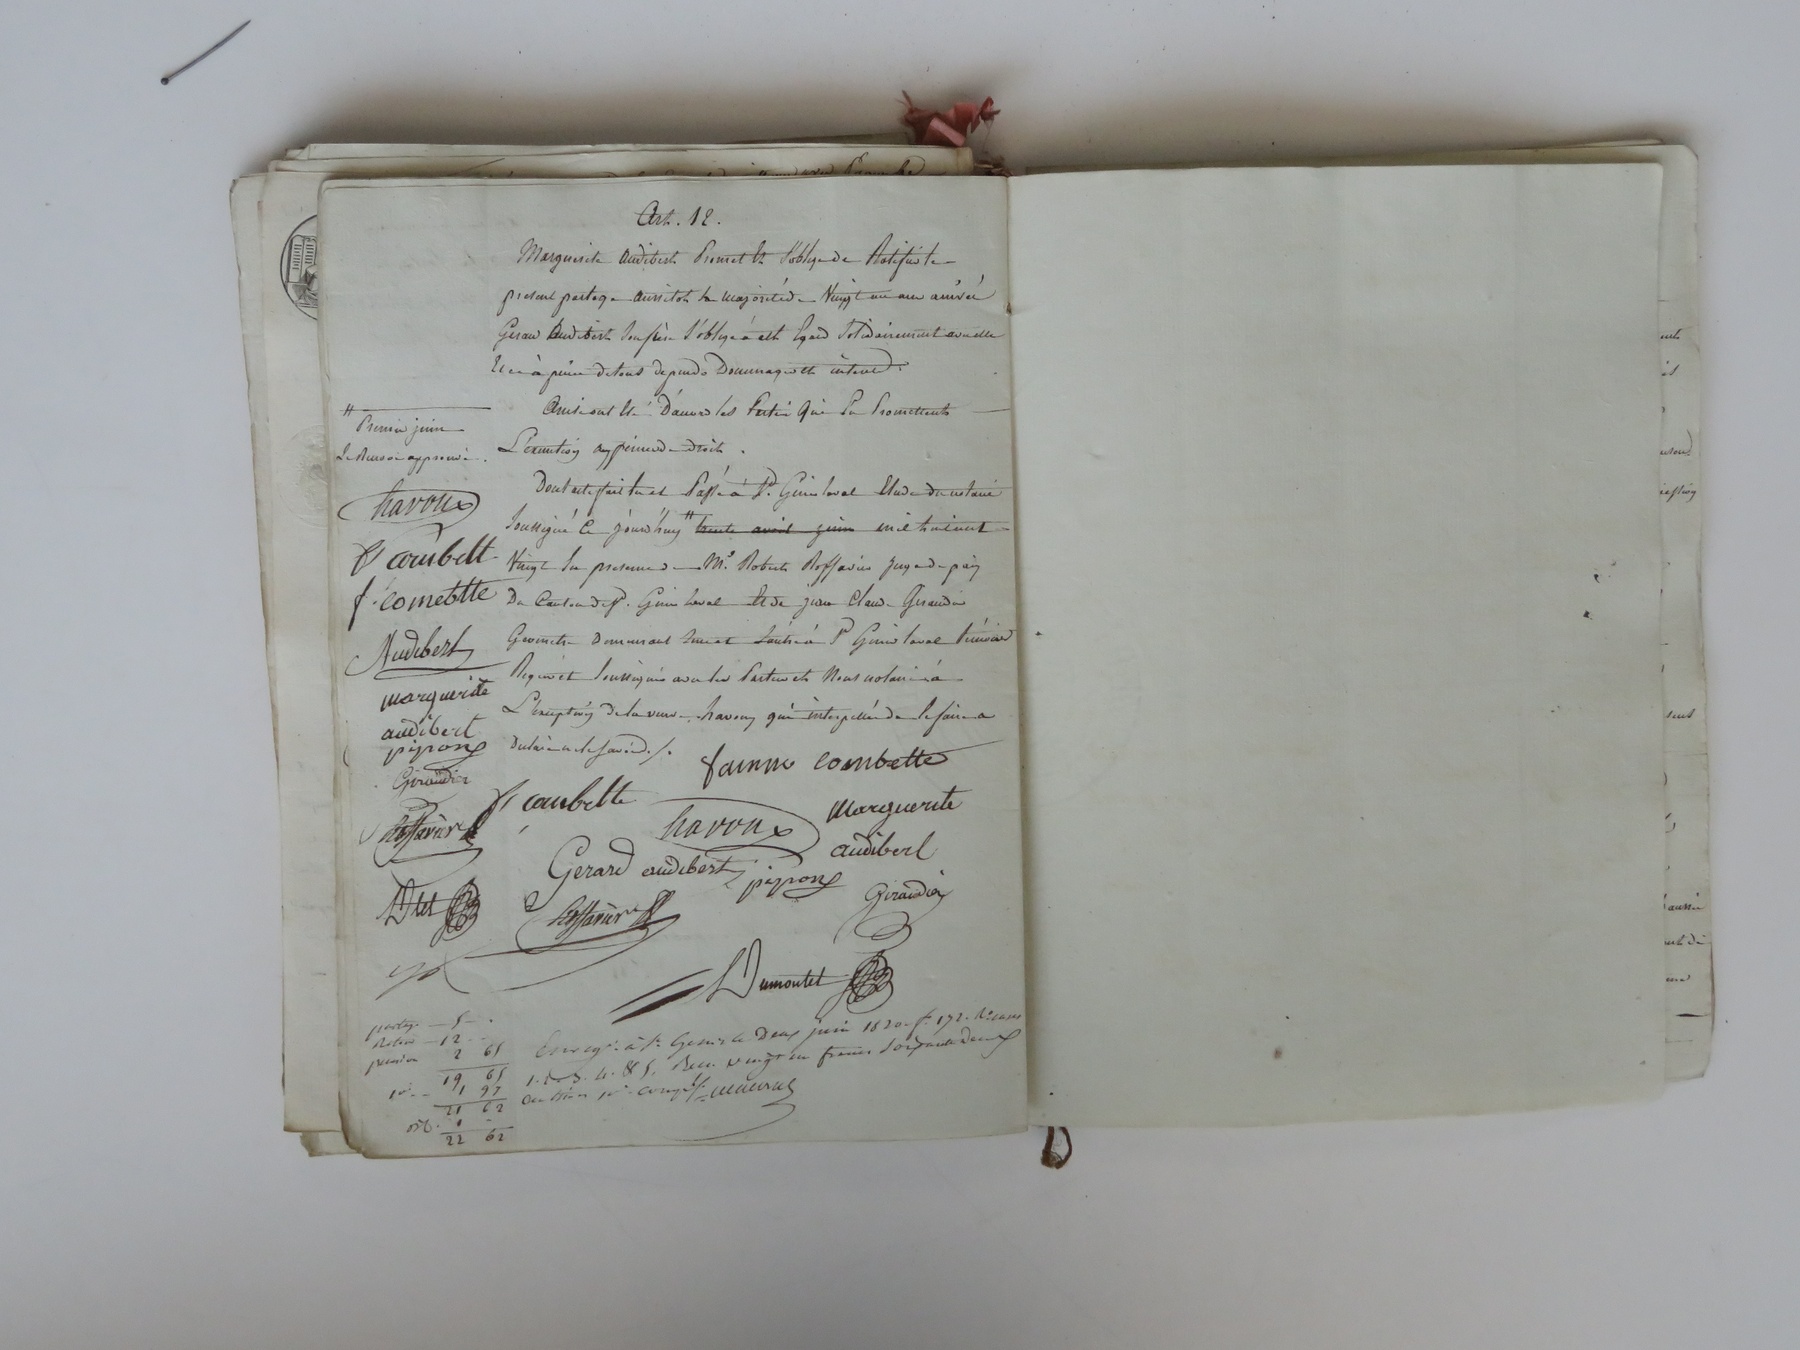 Art. 12.
Marguerite audibert Promet Et S'oblige de Ratifier le
present partage aussitot sa majorité de Vingt un ans arrivée
Gerard Audibert son frère S'oblige à cet Egard Solidairement avec elle
Et ce à peine de tous depends Dommages et interets.
Ainsi ont Eté D'accord les Parties Qui En Promettent
L'execution aux peines de droit.
Dont acte fait lu et Passé à St. Genis laval Etude du notaire
soussigné Ce jourd'huy # trente avril juin mil huit cent
Vingt En presence de Mr. Robert Roffavier Juge de paix
Du Canton de St. Genis laval Et de jean Claude Giraudier
Geometre demeurant à St Genis laval témoins
Requis et soussignés avec les Parties et Nous notaire à
L'exception de la veuve havoux qui interpellée de le faire a
Declaré ne le savoir ./.
#
Premier juin
le Renvoi approuvé.
havoux
combett
f. comebtte
Audibert
marguerite
audibert
pipon
Giraudier
Roffavier
Dtet
fainne combette
combette
havoux
marguerite
audibert
Gerard audibert
pipon
Giraudier
Roffavier
Dumoutet
partage — 5 - .
12 - -
pension 2 65
19 65
10e. - 1 97
21 62
1 -
22 62
Enregé. à St. Genis le Deux juin 1820. f. 172. Ro cases
1. 2. 3. 4. & 5. Recu vingt un francs Soixante deux
centimes 10e. compris